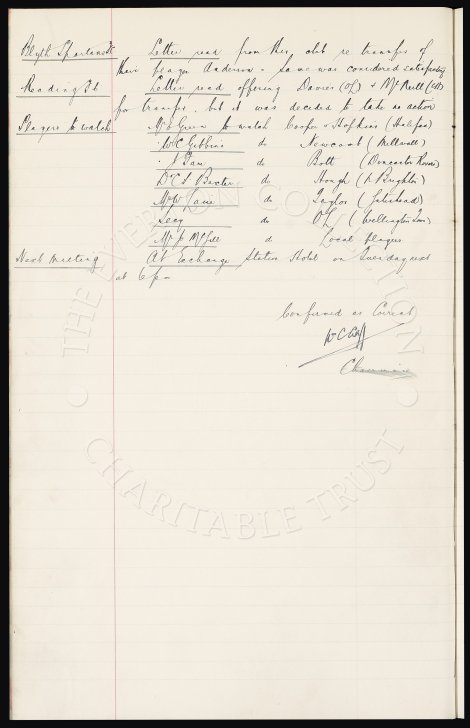 Blyth Spartans Letter read from this club re transfer of
their player Anderson & same was considered satisfactory
Reading F.C. Letter read offering Davies (OL) & McNeill (CH)
for transfer, but it was decided to take no action
Players to watch Mr Green to watch Cooper & Hopkins (Halifax)
" W.C. Gibbins do Newcomb (Millwall)
" do Bott (Doncaster Rovers)
Dr C.S. Baxter do Hough (N. Brighton)
do Taylor (Gateshead)
Secy do OL (Wellington Tn)
Mr J. McGill do Local players
Next Meeting At Exchange Station Hotel on Tuesday next
at 6 pm
Confirmed as Correct
W C Cuff
Chairman
THE EVERTON COLLECTION
CHARITABLE TRUST